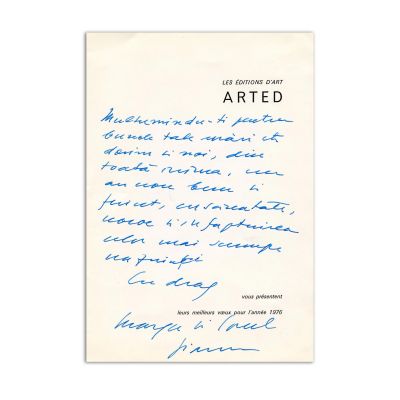 LES ÉDITIONS D'ART
ARTED
Mulțumindu-ți pentru
bunele tale urări îți
dorim și noi, din
toată inima, un
an nou bun și
fericit, cu sănătate,
noroc și înfăptuirea
celor mai scumpe
năzuinți
Cu drag
vous présentent
leurs meilleurs vœux pour l'année 1976